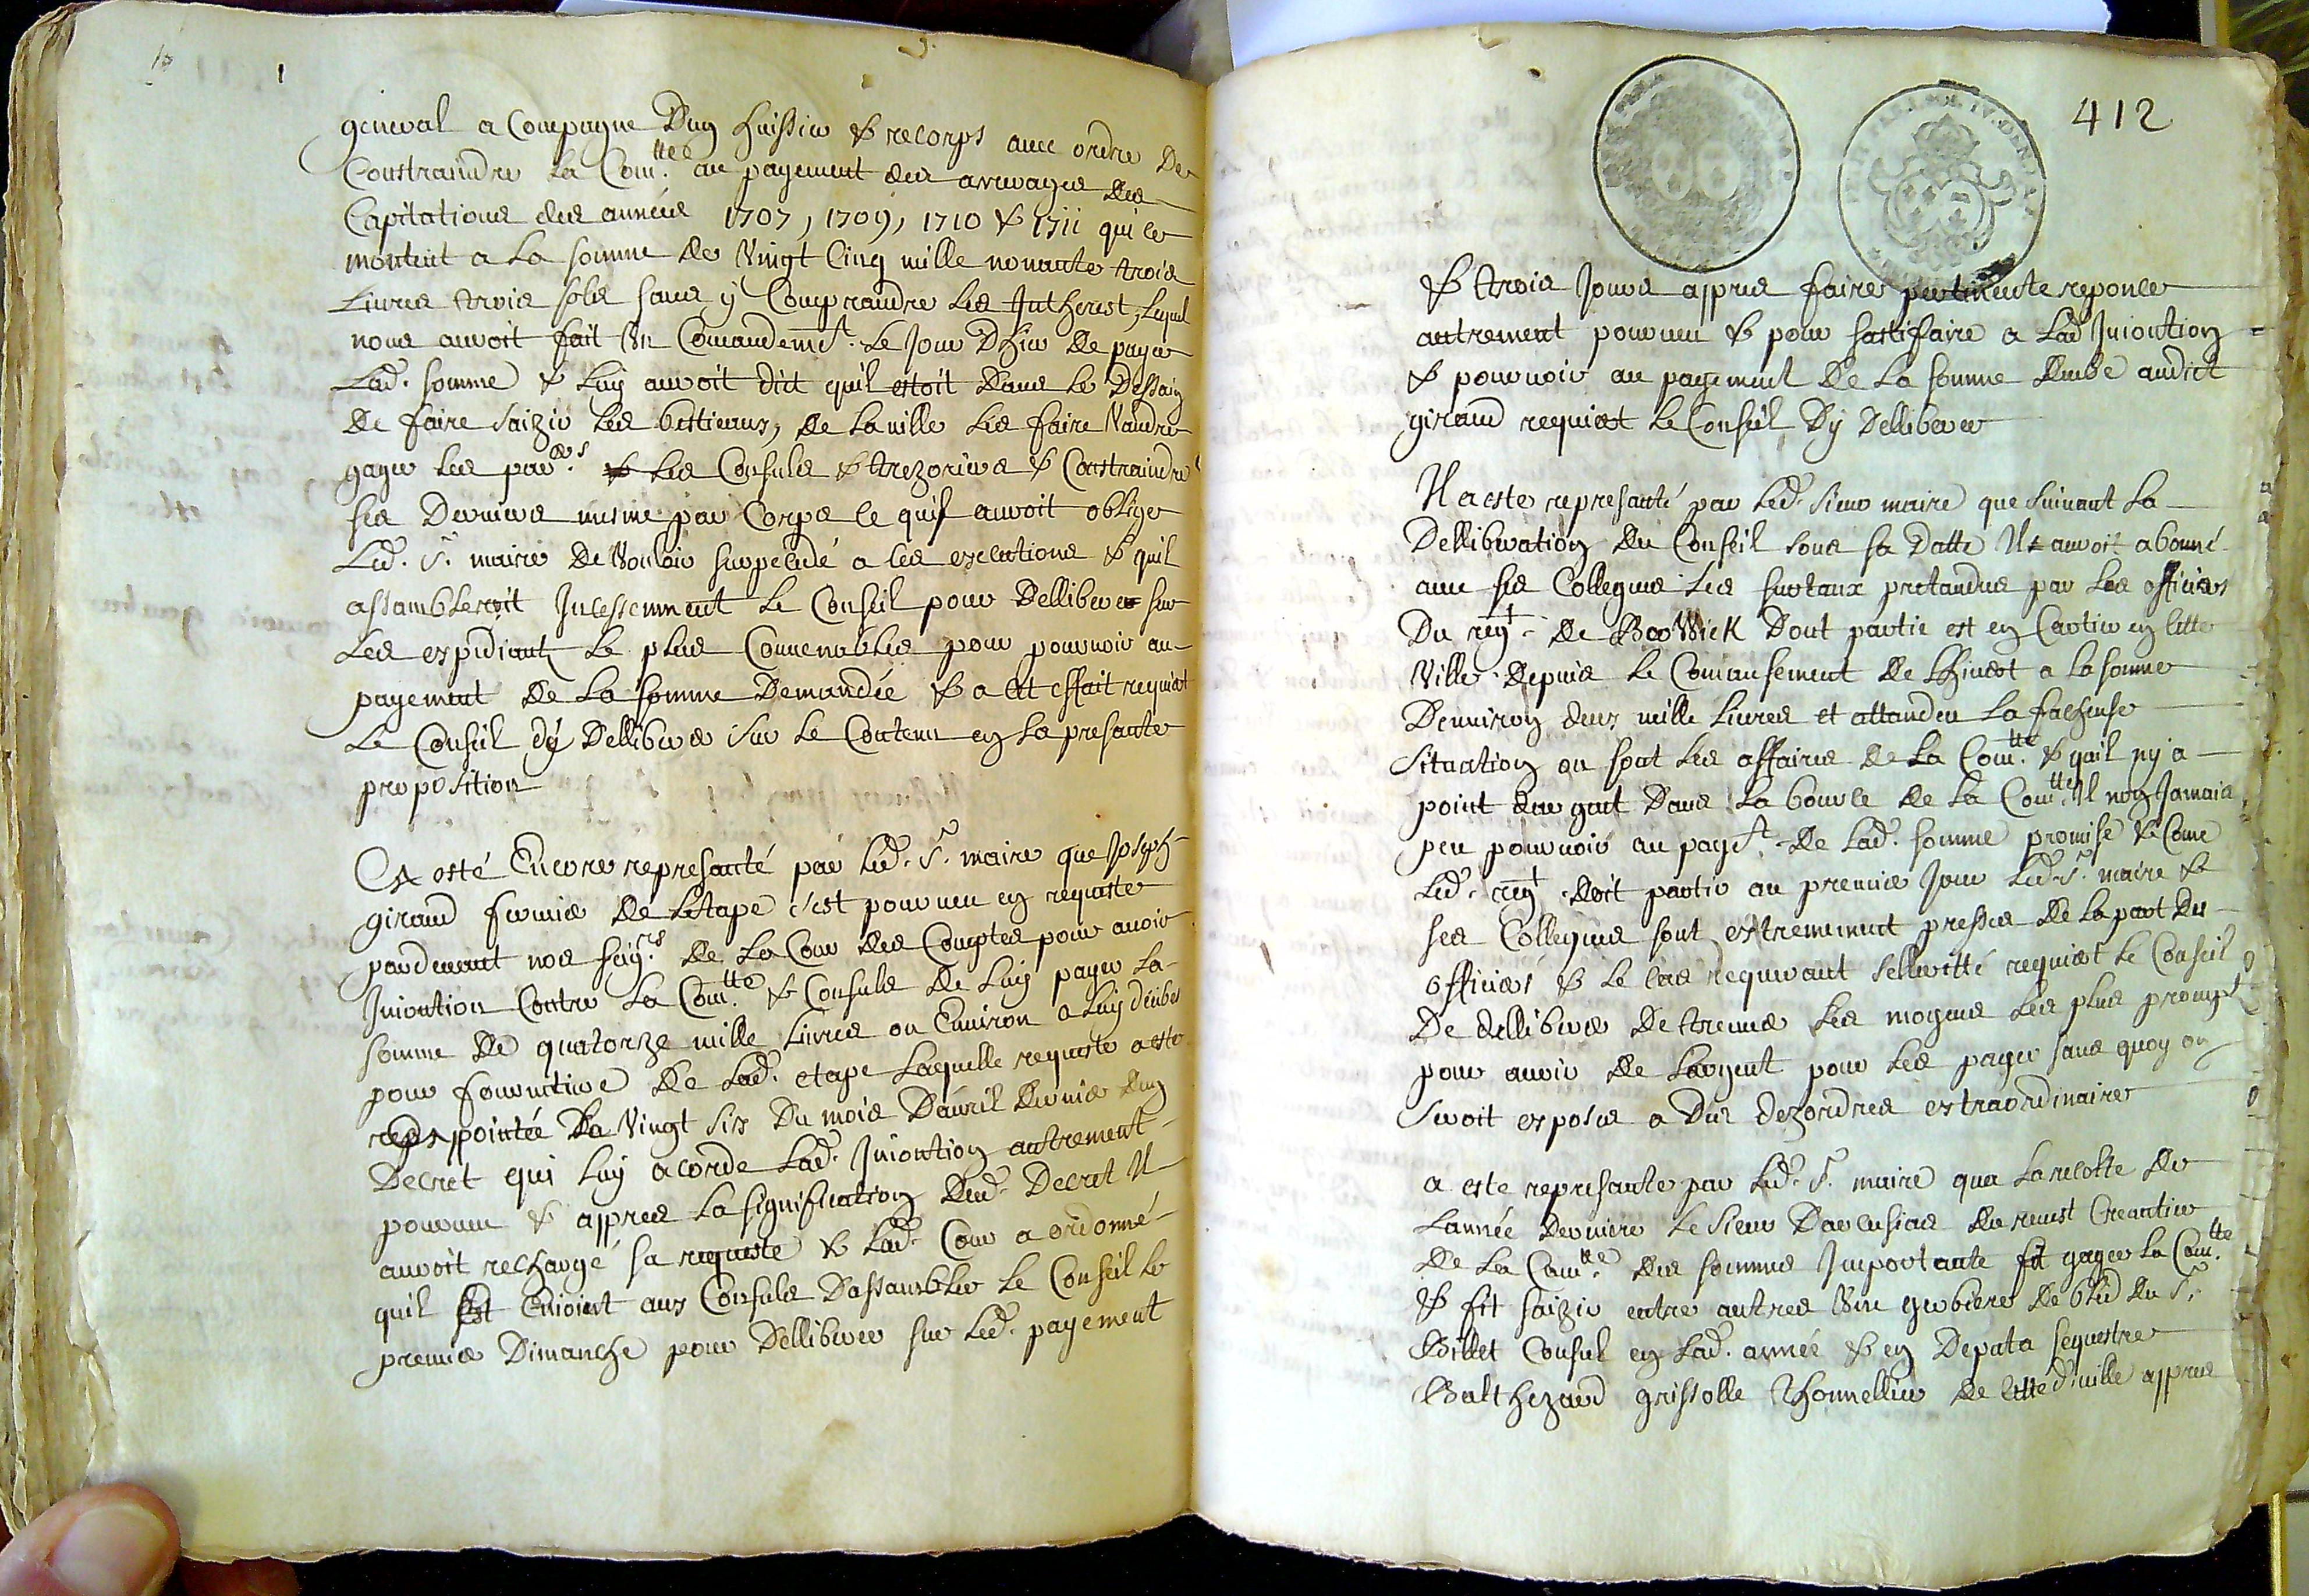 general a Compagne Dun huissier & recorps avec ordre De
Constraindre La Com.tte au payement des arreyages des
Capitations des années 1707, 1709, 1710 & 1711 qui ce
montent a La somme de Vingt Cinq mille nonante trois
Livres trois sols sans ÿ Comprandre Les Intherest, Lequel
nous auroit fait Un Comandemt. Le Jour Dhier De payer
Lad. somme & Luy auroit dict quil estoit Dans Le Dessain
De faire saizir Les bestieaux, de La ville Les faire Vandre
gager Les par.ers & Les Consuls & trezoriers & Constraindre
ses Derniers mesme par Corps ce quil auroit obligé
Led. Sr. maire De Vouloir surpelidé a ses execations & quil
assambleroit Incessemment Le Conseil pour Delliberer sur
Les expediants Le plus Convenables pour pourvoir au
payement De La somme Demandée & a cet effait requiert
Le Conseil dÿ Delliberer sur Le Contenu en La presante
proposition
A esté Encore represanté par Led. Sr. maire que Joseph
giraud fermier De Letape s'est pourveu en requeste
pardevant nos seig.rs De La Cour des Comptes pour avoir
Inionction Contre La Com.tte & Consuls De Luy payer La
somme De quatorze mille Livres ou Environ a Luy deube
pour fourniture De Lad. etape Laquelle requeste a este
reppointée Du Vingt six Du mois Dauril dernier Dun
Decret qui Luy acorde Lad. Inionction autrement
pourveu & appres La signification dud. Decret Il
auroit rechargé sa requeste & Lad. Cour a ordonné
quil Est Enioint aux Consuls Dassambler Le Conseil Le
premier Dimanche pour Delliberer sur Led. payement
412
& trois Jours appres faire pertinente reponce
autrement pourveu & pour sastifaire a Lad Inionction
& pourvoir au payement De La somme deube audict
giraud requiert Le Conseil Dÿ Delliberer
Il a este represanté par Led. sieur maire que suivant La
Delliberation du Conseil sous sa Datte Il auroit abonné
avec ses Collegues Les surtaux pretandus par Les officiers
Du regt. De BarWick Dont partie est en Cartier en cette
Ville depuis Le Comansement de Lhivert a La somme
Denviron deux mille Livres et attandeu La facheuse
Situation ou sont Les affaires de La Com.tte & quil ny a
point dargant Dans La bource de La Com.tte Il non Jamais
peu pourvoir au payet. De Lad. somme promise & Come
Led. regt. doit partir au premier Jour Led. Sr. maire &
ses Collegues sont extremement presses De La part des
officiers & Le Cas requerant Cellerité requiert Le Conseil
De delliberer De treuver Les moyens Les plus prompt
pour avoir De Largent pour Les payer sans quoy on
seroit exposes a Des dezordres extraordinaires
a este represante par Led. Sr. maire qua La recolte De
Lannée Derniere Le Sieur Darcusias Creantier
De La Com.tte des sommes Importante fit gager La Com.tte
& fit saizir entre autres Une gerbiere De bled Du Sr.
Billet Consul en Lad. année & en Deputa sequestre
Balthezard grissolle thonnellier De cette d. ville appres